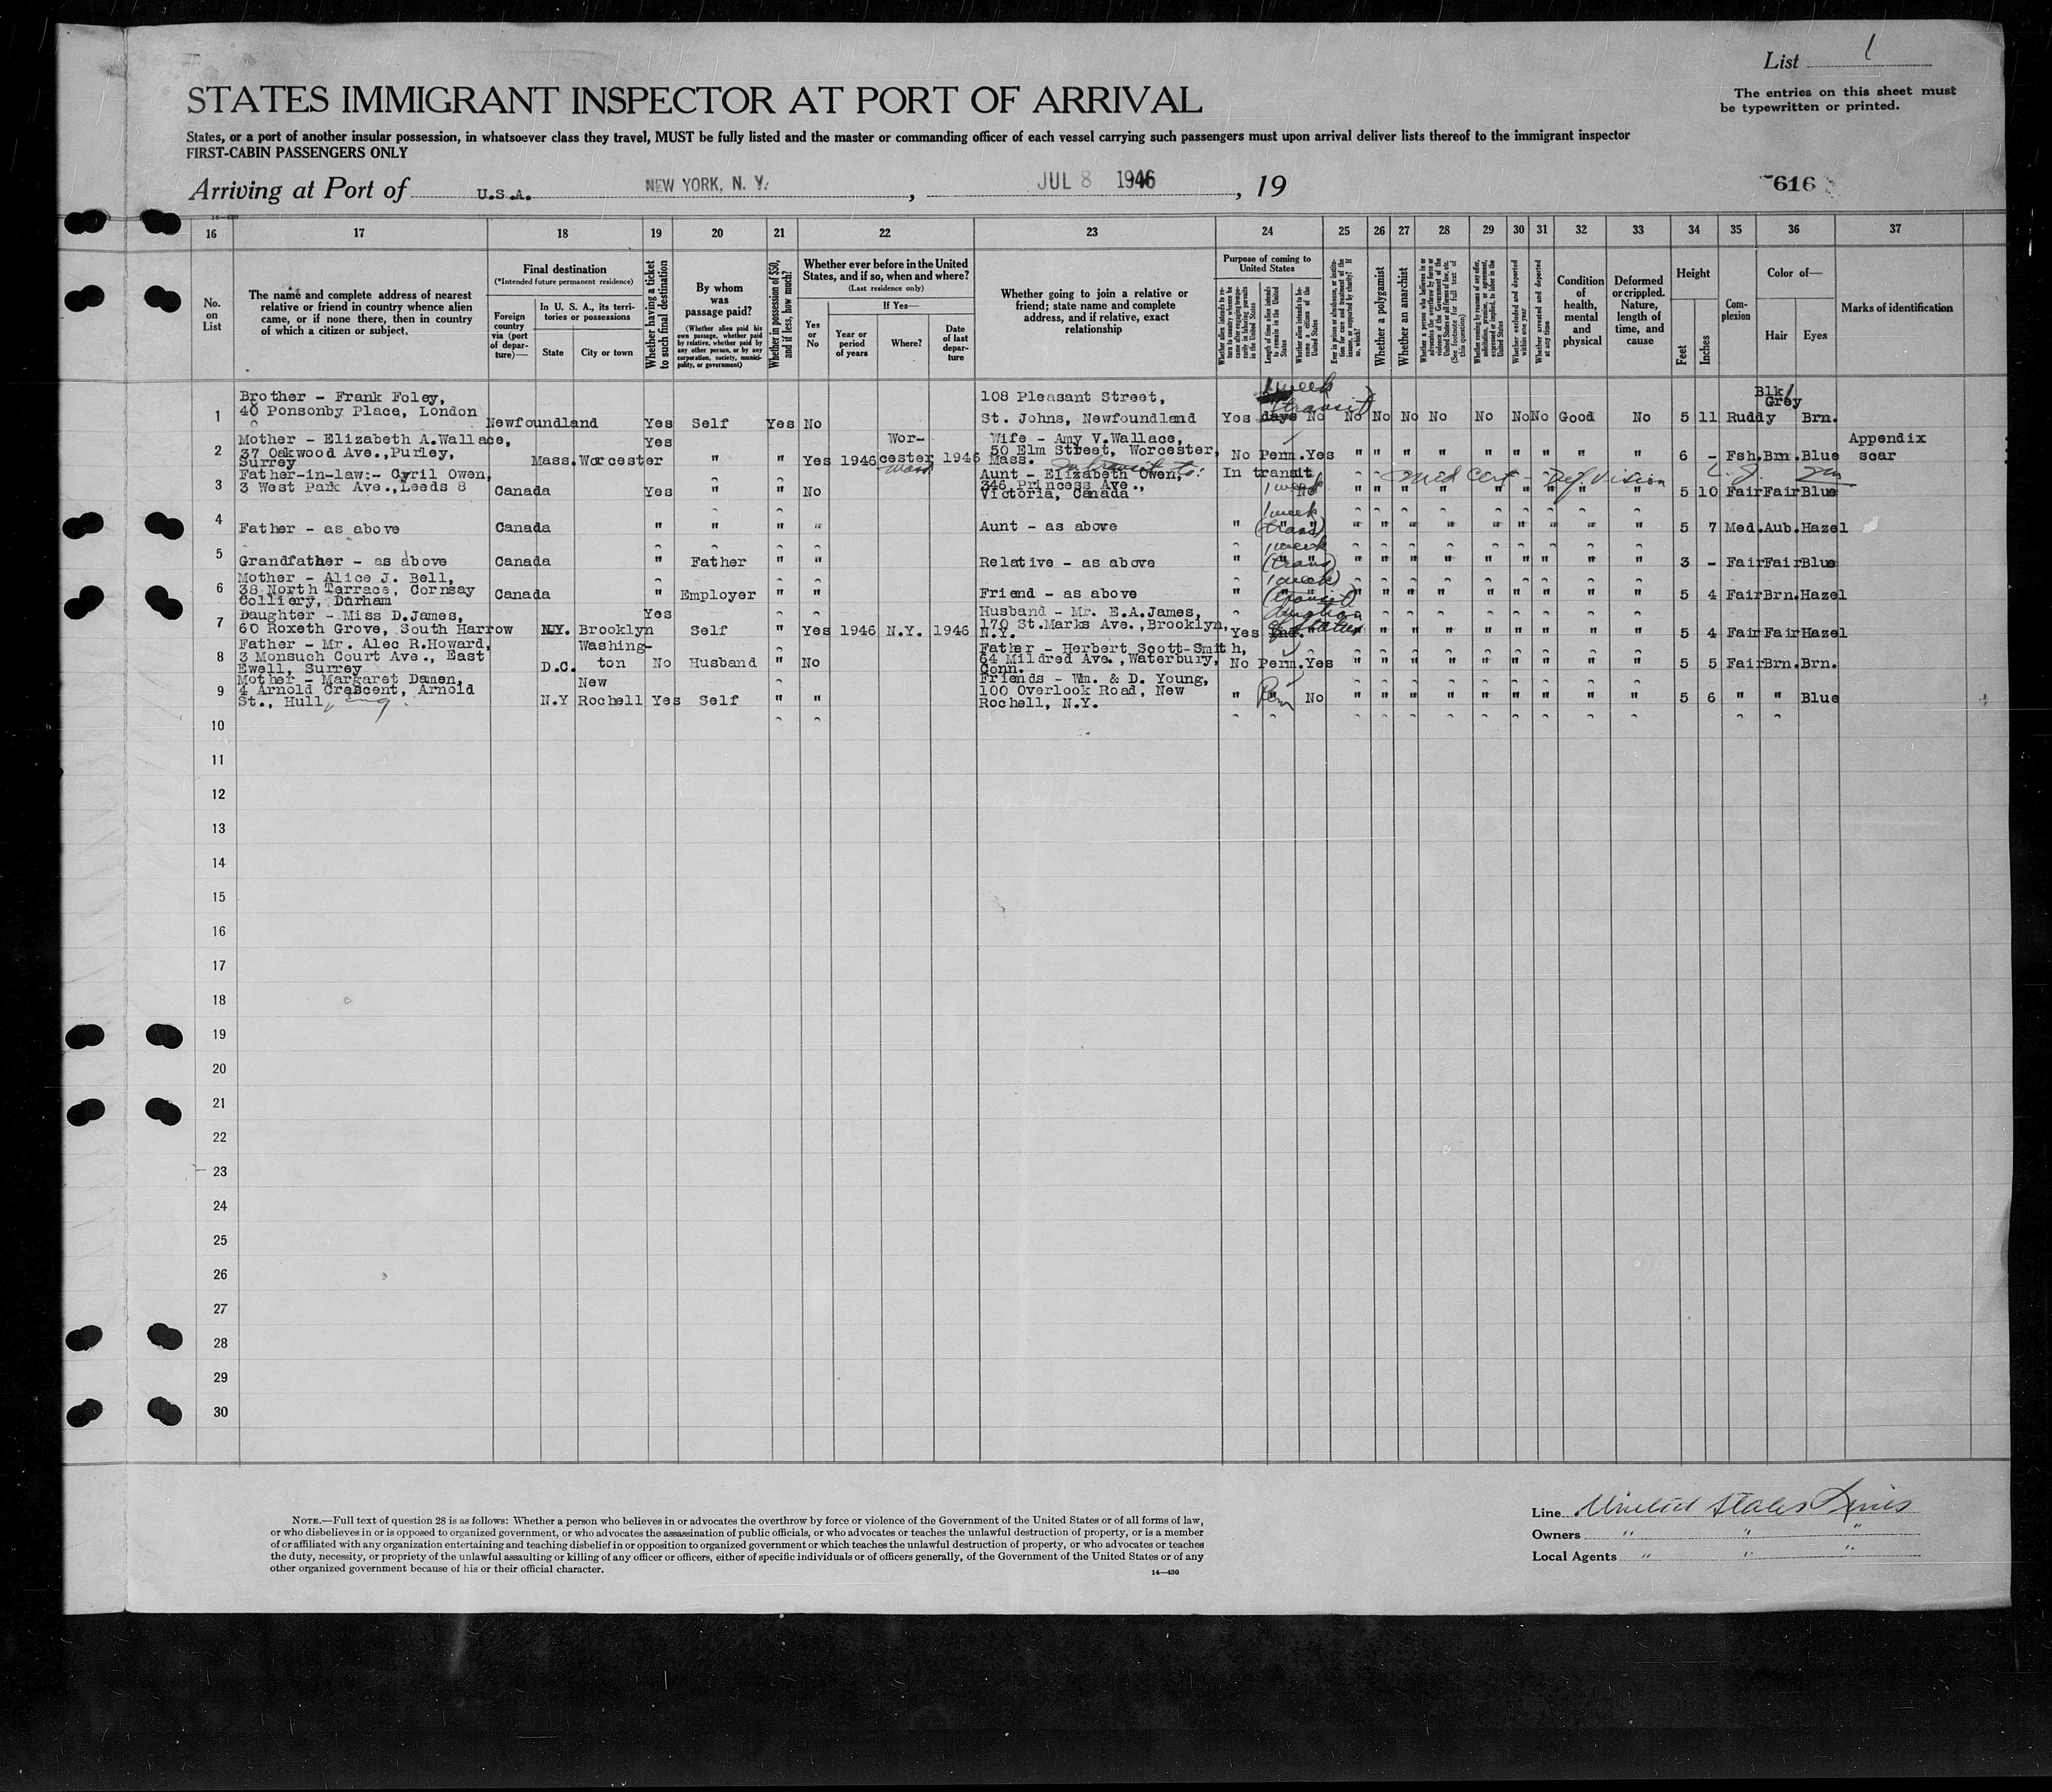 List 1
The entries on this sheet must
be typewritten or printed.
STATES IMMIGRANT INSPECTOR AT PORT OF ARRIVAL
States, or a port of another insular possession, in whatsoever class they travel, MUST be fully listed and the master or commanding officer of each vessel carrying such passengers must upon arrival deliver lists thereof to the immigrant inspector
FIRST-CABIN PASSENGERS ONLY
Arriving at Port of U.S.A. NEW YORK, N. Y. , JUL 8 1946 , 19
616
14-430
16 17 18 19 20 21 22 23 24 25 26 27 28 29 30 31 32 33 34 35 36 37
No. on List
The name and complete address of nearest
relative or friend in country whence alien
came, or if none there, then in country
of which a citizen or subject.
Final destination
(*Intended future permanent residence)
Foreign country via (port of departure)—
In U. S. A., its territories or possessions
State
City or town
Whether having a ticket to such final destination
By whom was passage paid?
(Whether alien paid his own passage, whether paid by relative, whether paid by any other person, or by any corporation, society, municipality, or government)
Whether in possession of $50, and if less, how much?
Whether ever before in the United States, and if so, when and where?
(Last residence only)
Yes or No
If Yes—
Year or period of years
Where?
Date of last departure
Whether going to join a relative or
friend; state name and complete
address, and if relative, exact
relationship
Purpose of coming to United States
Length of time alien intends to remain in the United States
Whether alien intends to become a citizen of the United States
Whether a polygamist
Whether an anarchist
Whether excluded and deported within one year
Whether arrested and deported at any time
Condition of health, mental and physical
Deformed or crippled. Nature, length of time, and cause
Height
Feet
Inches
Complexion
Color of—
Hair
Eyes
Marks of identification
1 Brother - Frank Foley,
40 Ponsonby Place, London
Newfoundland Yes Self Yes No
108 Pleasant Street,
St. Johns, Newfoundland
1 week (transit)
Yes days No No No No No No No No Good No 5 11 Ruddy Blk/ Grey Brn.
2 Mother - Elizabeth A.Wallace,
37 Oakwood Ave.,Purley,
Surrey
Mass. Worcester Yes " " Yes 1946 Wor-
cester Mass 1946
Wife - Amy V.Wallace,
50 Elm Street, Worcester,
Mass.
No Perm. Yes " " " " " " " " " 6 - Fsh. Brn. Blue Appendix
scar
3 Father-in-law:- Cyril Owen,
3 West Park Ave.,Leeds 8
Canada Yes " " No
In transit to:
Aunt - Elizabeth Owen,
346 Princess Ave.,
Victoria, Canada
In transit
1 week No " " " " " " " " " 5 10 Fair Fair Blue
med Cert - Def. Vision
4 Father - as above Canada " " " "
Aunt - as above
" 1 week (trans) " " " " " " " " " " 5 7 Med. Aub. Hazel
5 Grandfather - as above Canada " Father " "
Relative - as above
" 1 week (trans) " " " " " " " " " " 3 - Fair Fair Blue
6 Mother - Alice J. Bell,
38 North Terrace, Cornsay
Colliery, Durham
Canada " Employer " "
Friend - as above
" 1 week (transit) " " " " " " " " " 5 4 Fair Brn. Hazel
7 Daughter - Miss D.James,
60 Roxeth Grove, South Harrow
N.Y. Brooklyn Yes Self " Yes 1946 N.Y. 1946
Husband - Mr. E.A.James,
170 St.Marks Ave.,Brooklyn,
N.Y.
Yes Ind. duration of status " " " " " " " " " " 5 4 Fair Fair Hazel
8 Father - Mr. Alec R.Howard,
3 Monsuch Court Ave., East
Ewell, Surrey
D.C. Washing-
ton No Husband " No
Father - Herbert Scott-Smith,
64 Mildred Ave., Waterbury,
Conn.
No Perm. Yes " " " " " " " " " 5 5 Fair Brn. Brn.
9 Mother - Margaret Damen,
4 Arnold Crescent, Arnold
St., Hull, Eng.
N.Y New
Rochell Yes Self " "
Friends - Wm. & D. Young,
100 Overlook Road, New
Rochell, N.Y.
" " Perm No " " " " " " " " " 5 6 " " Blue
10
11
12
13
14
15
16
17
18
19
20
21
22
23
24
25
26
27
28
29
30
NOTE.—Full text of question 28 is as follows: Whether a person who believes in or advocates the overthrow by force or violence of the Government of the United States or of all forms of law,
or who disbelieves in or is opposed to organized government, or who advocates the assassination of public officials, or who advocates or teaches the unlawful destruction of property, or is a member
of or affiliated with any organization entertaining and teaching disbelief in or opposition to organized government or which teaches the unlawful destruction of property, or who advocates or teaches
the duty, necessity, or propriety of the unlawful assaulting or killing of any officer or officers, either of specific individuals or of officers generally, of the Government of the United States or of any
other organized government because of his or their official character.
14-430
Line United States Lines
Owners " " "
Local Agents " " "